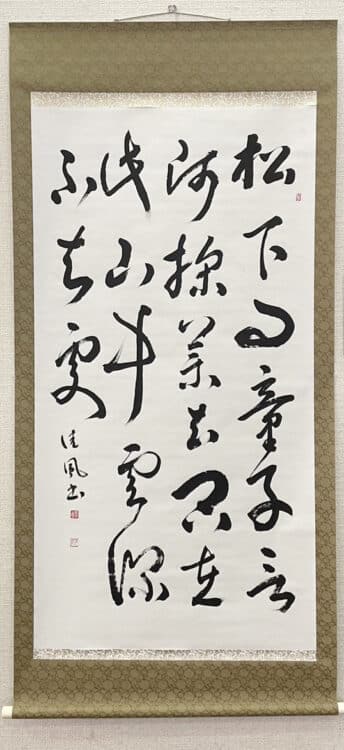 松下問童子言
師採薬去只在
此山中雲深
不知處
佳風書